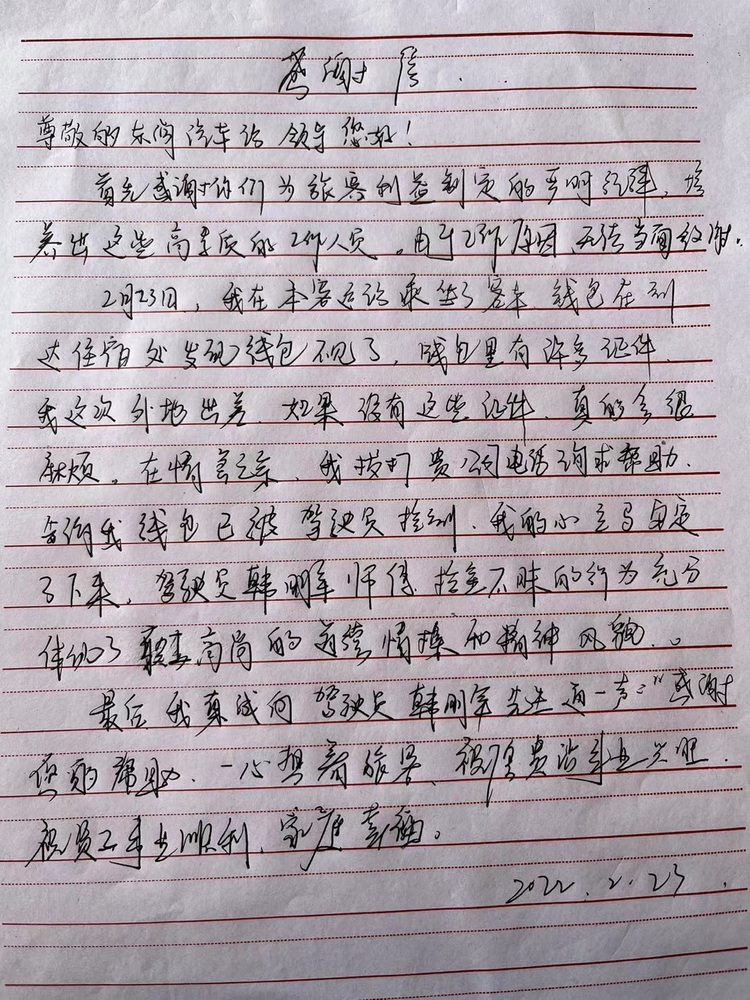 感谢信
尊敬的东阿汽车站领导您好！
首先感谢你们为旅客利益制定的严明纪律，培
养出这些高素质的工作人员。由于工作原因，无法当面致谢.
2月23日，我在本客运站乘坐了客车 钱包在到
达住宿处发现钱包不见了，钱包里有许多证件.
我这次外地出差，如果没有这些证件，真的会很
麻烦。在情急之余，我拨打贵公司电话询求帮助.
告询我钱包已被驾驶员捡到，我的心立马安定
了下来，驾驶员韩明军师傅拾金不昧的行为充分
体现了高尚的道德情操和精神风貌。
最后我真诚向驾驶员韩明军先生再一声:"感谢
您的帮助，一心想着旅客，祝愿贵站事业兴旺.
祝员工事业顺利，家庭幸福。
2022.2.23.